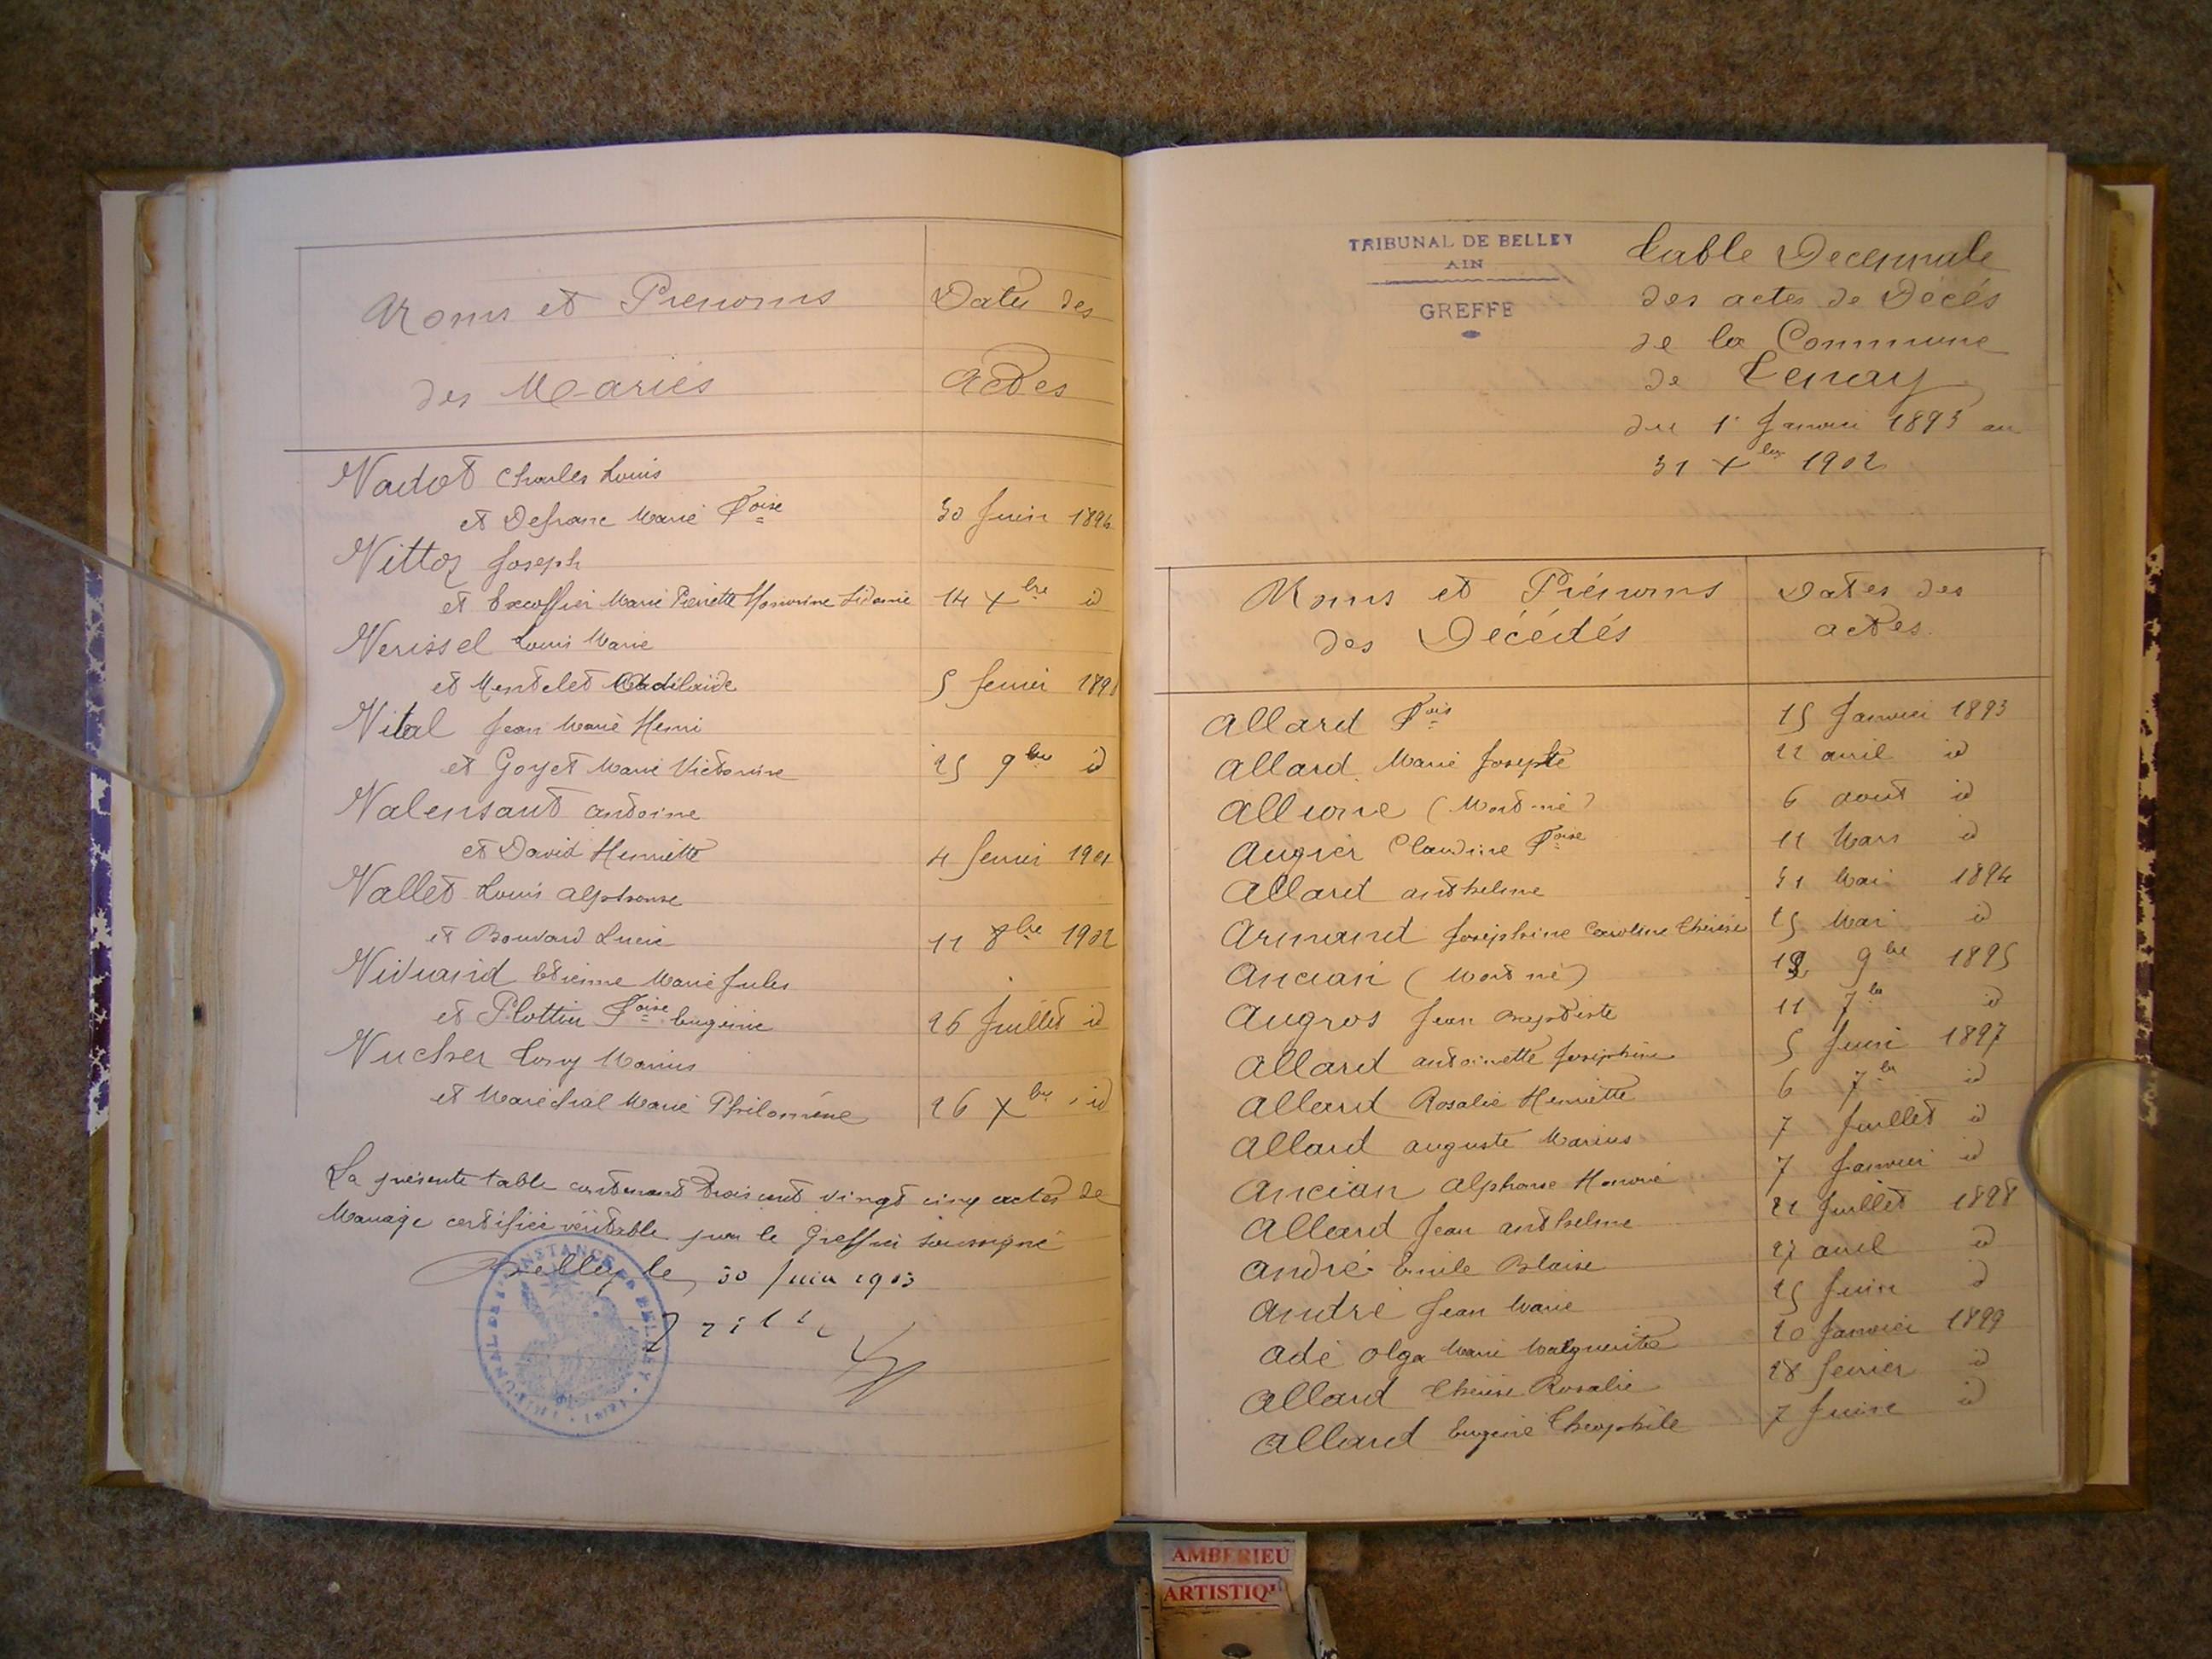 Noms et Prenoms
des Mariés
Dates des
Actes
Nadot Charles Louis
et Defranc Marie Foise
30 Juin 1894
Vittoz Joseph
et Excoffier Marie Pierrette Honorine Sidonie
14 Xbre id
Verissel Louis Marie
et Montelet Adélaïde
5 fevrier 1898
Vital Jean Marie Henri
et Goyet Marie Victorine
25 9bre id
Valensaut Antoine
et David Henriette
4 fevrier 1901
Vallet Louis Alphonse
et Bouvard Lucie
11 8bre 1902
Vivrand Etienne Marie Jules
et Plottier Foise Eugénie
26 Juillet id
Vucher Tony Marius
et Maréchal Marie Philomène
26 Xbre id
La présente table contenant trois cent vingt cinq actes de
Mariage certifiée véritable par le Greffier soussigné
Belley le, 30 Juin 1903
TRIBUNAL DE Iere INSTANCE DE BELLEY (AIN)
TRIBUNAL DE BELLEY
AIN
GREFFE
Table Decennale
des actes de Décés
de la Commune
de Tenay
du 1er Janvier 1893 au
31 Xbre 1902
Noms et Prénoms
des Décédés
Dates des
actes.
Allard Fois 15 Janvier 1893
Allard Marie Josepte 22 avril id
Allioine (Mort-né) 6 aout id
Augier Claudine Foise 11 Mars id
Allard anthelme 31 Mai 1894
Armand Joséphine Caroline Thérèse 25 Mai id
Ancian (Mort né) 9bre 1895
Augros Jean Baptiste 11 7bre id
Allard antoinette Joséphine 5 Juin 1897
Allard Rosalie Henriette 6 7bre id
Allard auguste Marius 7 Juillet id
Ancian Alphonse Honoré 7 Janvier id
Allard Jean anthelme 21 Juillet 1898
André Emile Blaise 27 avril id
André Jean Marie 25 Juin id
Adé Olga Marie Marguerite 20 Janvier 1899
Allard Thérèse Rosalie 28 fevrier id
Allard Eugène Théophile 7 Juin id
AMBERIEU
ARTISTIQU